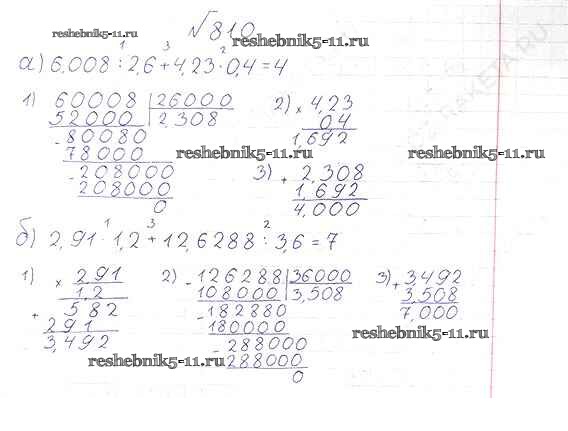 №810
reshebnik5-11.ru
reshebnik5-11.ru
1 3 2
а) 6,008 : 2,6 + 4,23 · 0,4 = 4
1) 60008 | 26000
52000 | 2,308
- 80080
78000
- 208000
208000
0
2) × 4,23
0,4
1,692
reshebnik5-11.ru
reshebnik5-11.ru
3) + 2,308
1,692
4,000
1 3 2
б) 2,91 · 1,2 + 12,6288 : 3,6 = 7
1) × 2,91
1,2
+ 582
291
3,492
2) - 126288 | 36000
108000 | 3,508
- 182880
180000
- 288000
288000
0
3) + 3,492
3,508
7,000
reshebnik5-11.ru
reshebnik5-11.ru